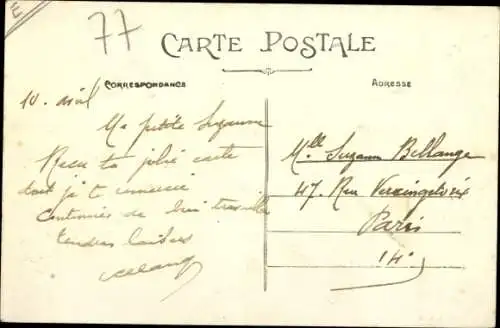 E
77
CARTE POSTALE
CORRESPONDANCE
ADRESSE
10. avril
Ma petite Suzanne
Reçu ta jolie carte
dont je te remercie
Continues de bien travailler
tendres baisers
Mlle Suzann Bellange
47. Rue Vercingetorix
Paris
14e